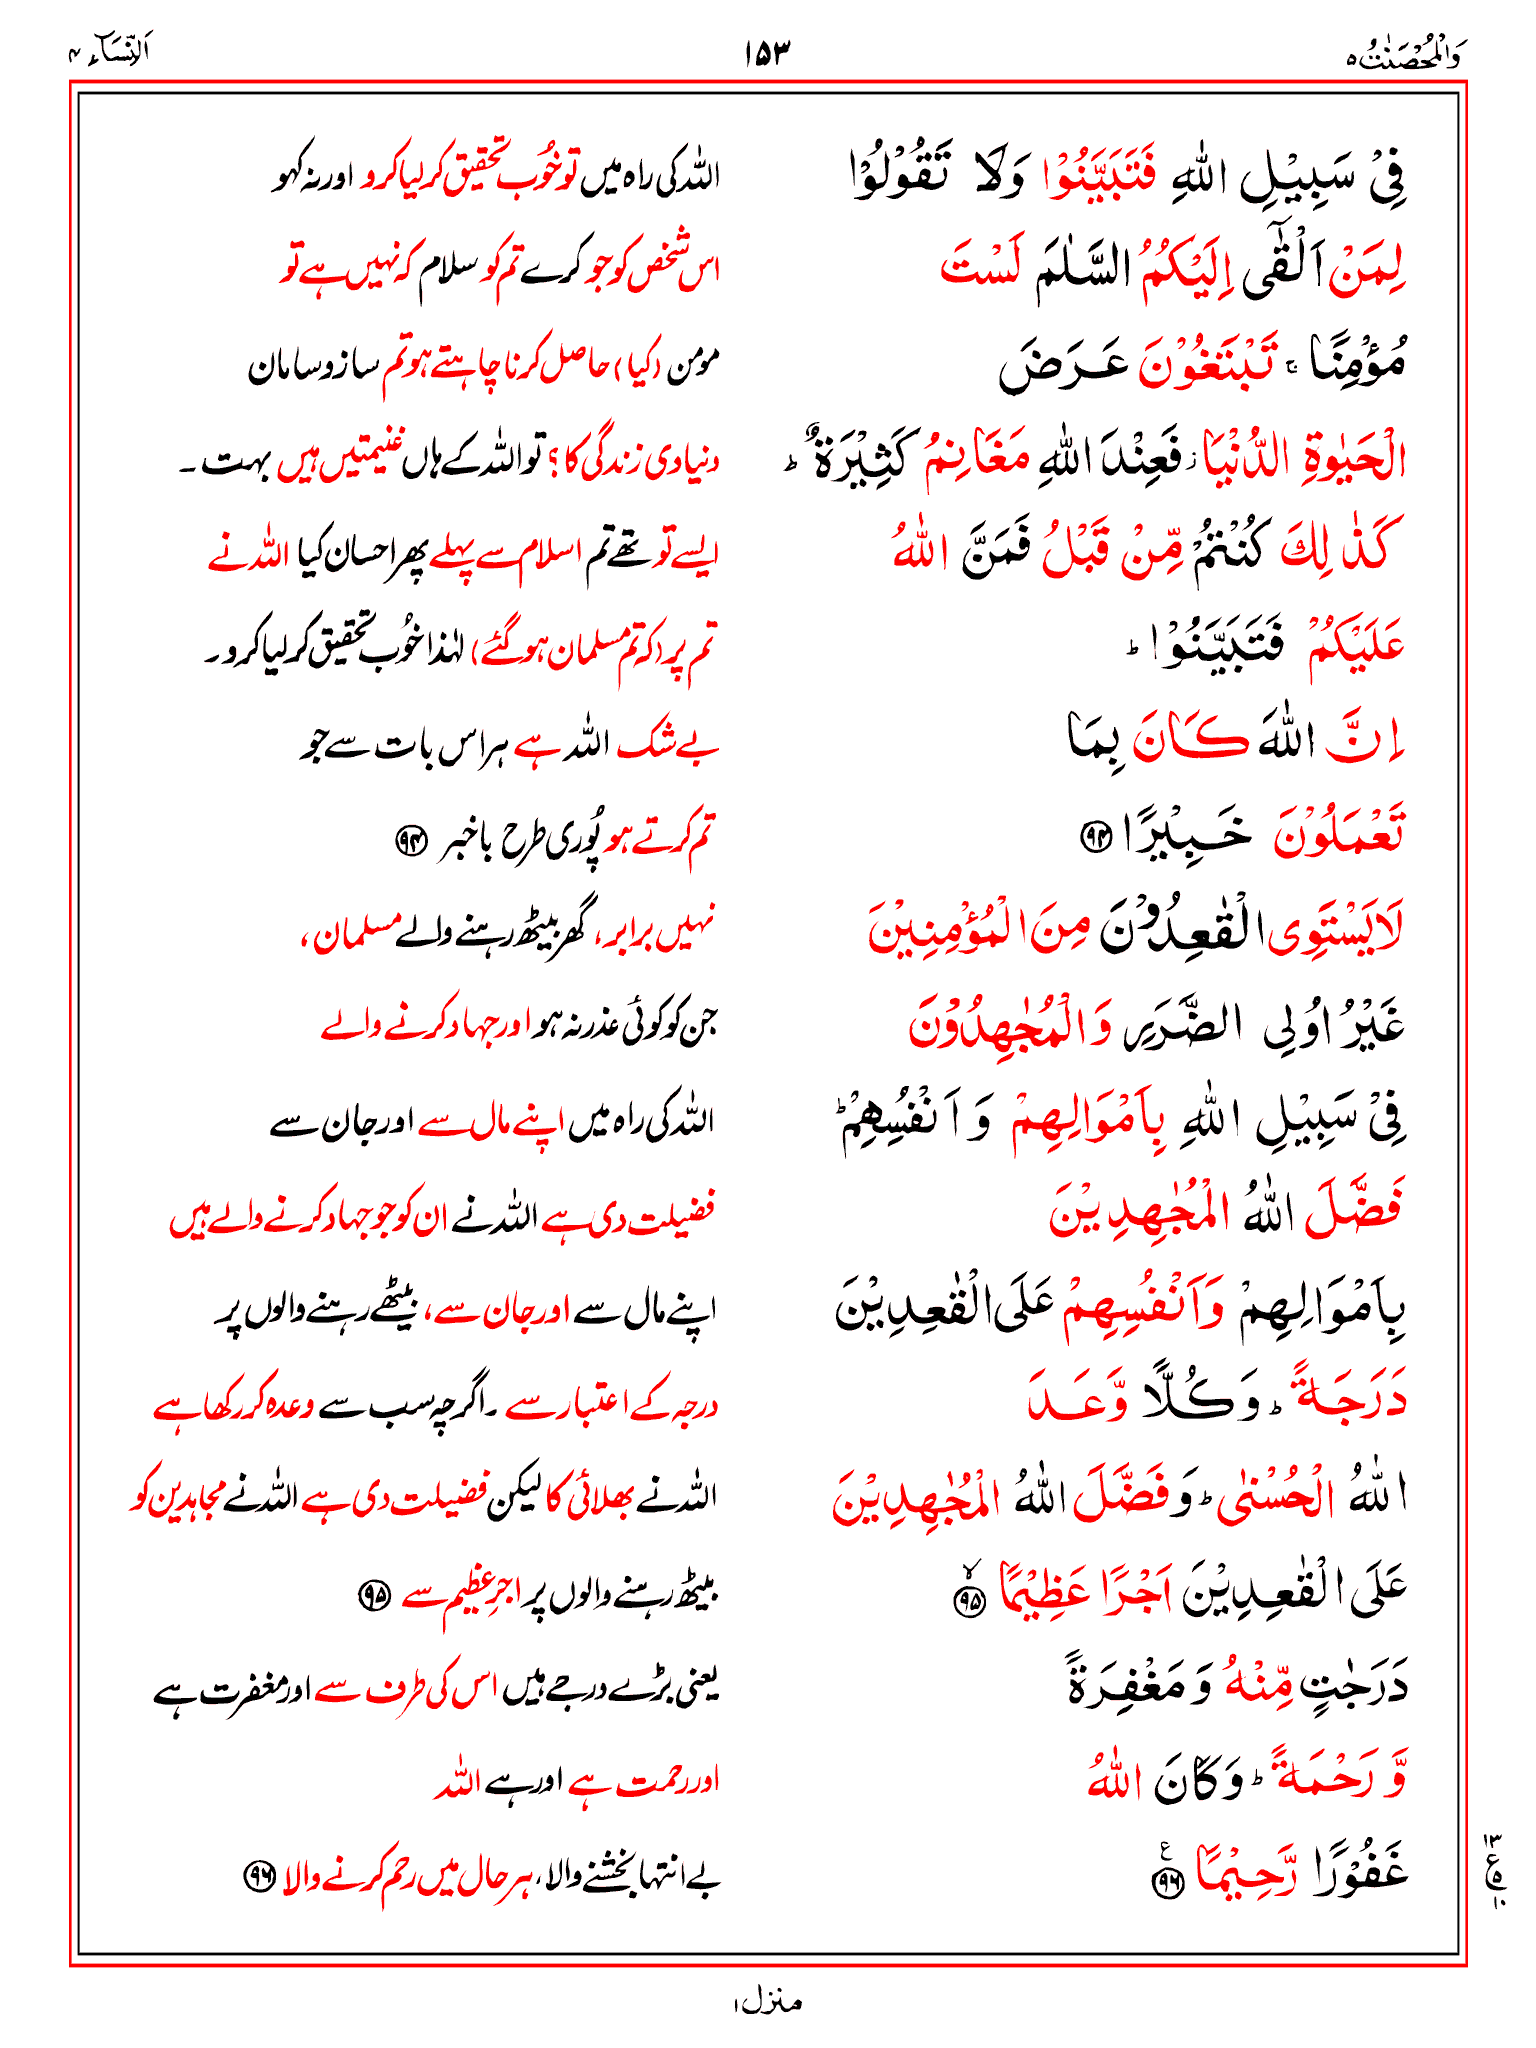 وَالْمُحْصَنٰتُ ۵ ۱۵۳ اَلنِّسَآء ۴
فِیْ سَبِیْلِ اللّٰهِ فَتَبَیَّنُوْا وَلَا تَقُوْلُوْا اللہ کی راہ میں تو خُوب تحقیق کرلیا کرو اور نہ کہو
لِمَنْ اَلْقٰۤی اِلَیْکُمُ السَّلٰمَ لَسْتَ اس شخص کو جو کرے تم کو سلام کہ نہیں ہے تو
مُؤْمِنًا ۚ تَبْتَغُوْنَ عَرَضَ مومن (کیا) حاصل کرنا چاہتے ہو تم ساز و سامان
الْحَیٰوةِ الدُّنْیَا ز فَعِنْدَ اللّٰهِ مَغَانِمُ کَثِیْرَةٌ ؕ دنیاوی زندگی کا؟ تو اللہ کے ہاں غنیمتیں ہیں بہت ۔
کَذٰلِكَ کُنْتُمْ مِّنْ قَبْلُ فَمَنَّ اللّٰهُ ایسے تو تھے تم اسلام سے پہلے پھر احسان کیا اللہ نے
عَلَیْکُمْ فَتَبَیَّنُوْا ؕ تم پر (کہ تم مسلمان ہوگئے) لہٰذا خُوب تحقیق کرلیا کرو ۔
اِنَّ اللّٰهَ کَانَ بِمَا بے شک اللہ ہے ہر اس بات سے جو
تَعْمَلُوْنَ خَبِیْرًا ﴿۹۴﴾ تم کرتے ہو پُوری طرح باخبر ﴿۹۴﴾
لَا یَسْتَوِی الْقٰعِدُوْنَ مِنَ الْمُؤْمِنِیْنَ نہیں برابر، گھر بیٹھ رہنے والے مسلمان،
غَیْرُ اُولِی الضَّرَرِ وَالْمُجٰهِدُوْنَ جن کو کوئی عذر نہ ہو اور جہاد کرنے والے
فِیْ سَبِیْلِ اللّٰهِ بِاَمْوَالِهِمْ وَاَنْفُسِهِمْ ؕ اللہ کی راہ میں اپنے مال سے اور جان سے
فَضَّلَ اللّٰهُ الْمُجٰهِدِیْنَ فضیلت دی ہے اللہ نے ان کو جو جہاد کرنے والے ہیں
بِاَمْوَالِهِمْ وَاَنْفُسِهِمْ عَلَی الْقٰعِدِیْنَ اپنے مال سے اور جان سے، بیٹھے رہنے والوں پر
دَرَجَةً ؕ وَکُلًّا وَّعَدَ درجہ کے اعتبار سے ۔ اگرچہ سب سے وعدہ کر رکھا ہے
اللّٰهُ الْحُسْنٰی ؕ وَفَضَّلَ اللّٰهُ الْمُجٰهِدِیْنَ اللہ نے بھلائی کا لیکن فضیلت دی ہے اللہ نے مجاہدین کو
عَلَی الْقٰعِدِیْنَ اَجْرًا عَظِیْمًا ﴿۹۵﴾ۙ بیٹھ رہنے والوں پر اجرِ عظیم سے ﴿۹۵﴾
دَرَجٰتٍ مِّنْهُ وَمَغْفِرَةً یعنی بڑے درجے ہیں اس کی طرف سے اور مغفرت ہے
وَّرَحْمَةً ؕ وَکَانَ اللّٰهُ اور رحمت ہے اور ہے اللہ
غَفُوْرًا رَّحِیْمًا ﴿۹۶﴾ع بے انتہا بخشنے والا، ہر حال میں رحم کرنے والا ﴿۹۶﴾
۱۳
ع ۵
۱۰
منزل ۱